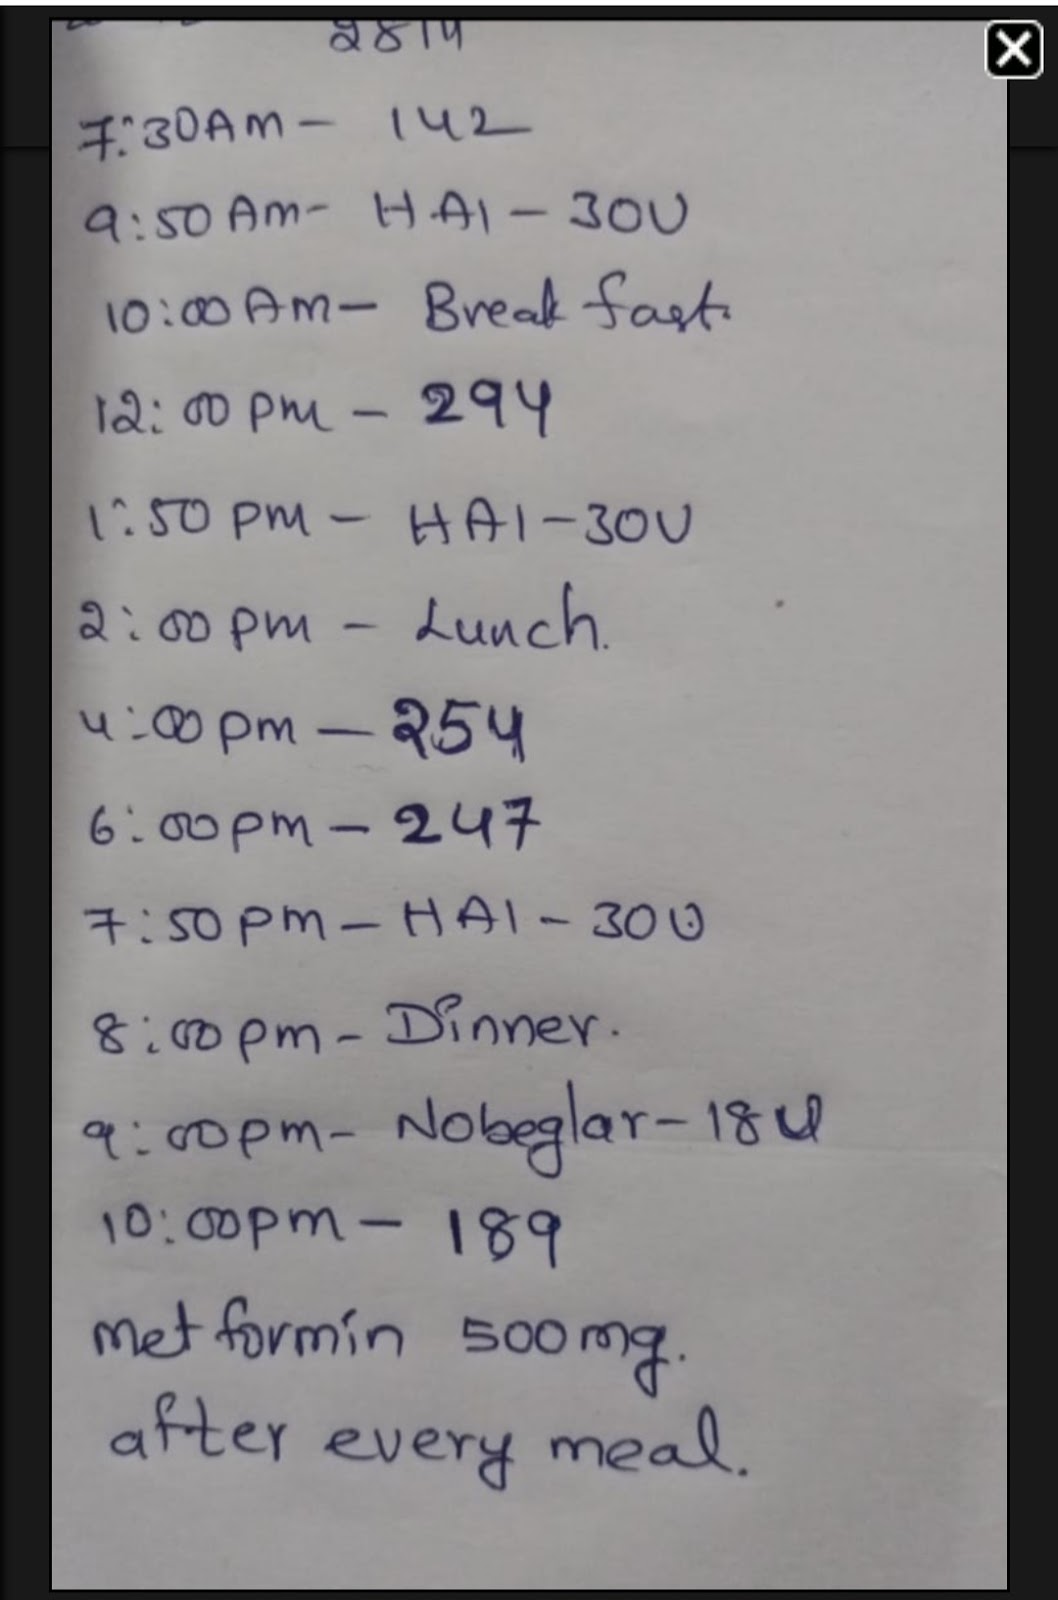 28/4
7:30AM - 142
9:50 AM - HAI - 30U
10:00 AM - Breakfast.
12:00 pm - 294
1:50 pm - HAI - 30U
2:00 pm - Lunch.
4:00 pm - 254
6:00 pm - 247
7:50 pm - HAI - 30U
8:00 pm - Dinner.
9:00 pm - Nobeglar - 18U
10:00 pm - 189
metformin 500mg.
after every meal.